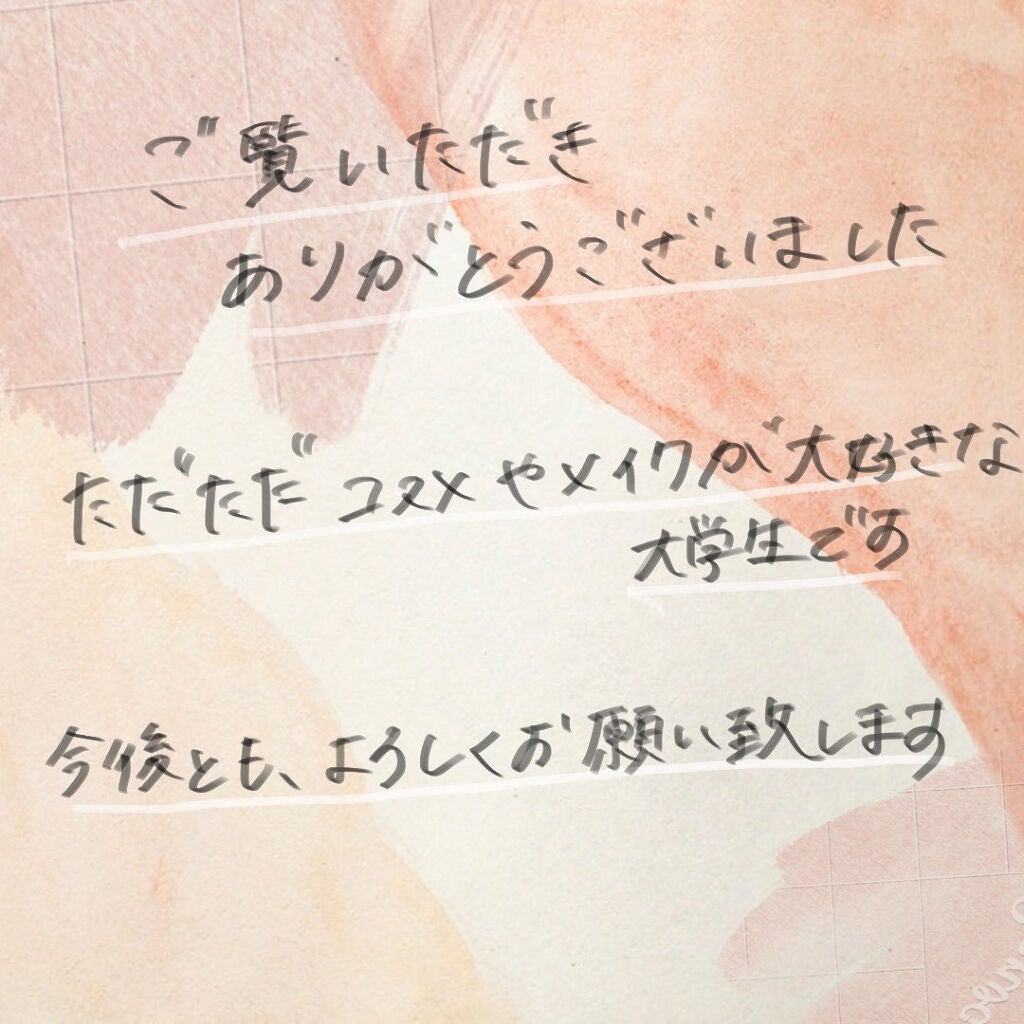 ご覧いただき
ありがとうございました
ただただコスメやメイクが大好きな
大学生です
今後とも、よろしくお願い致します